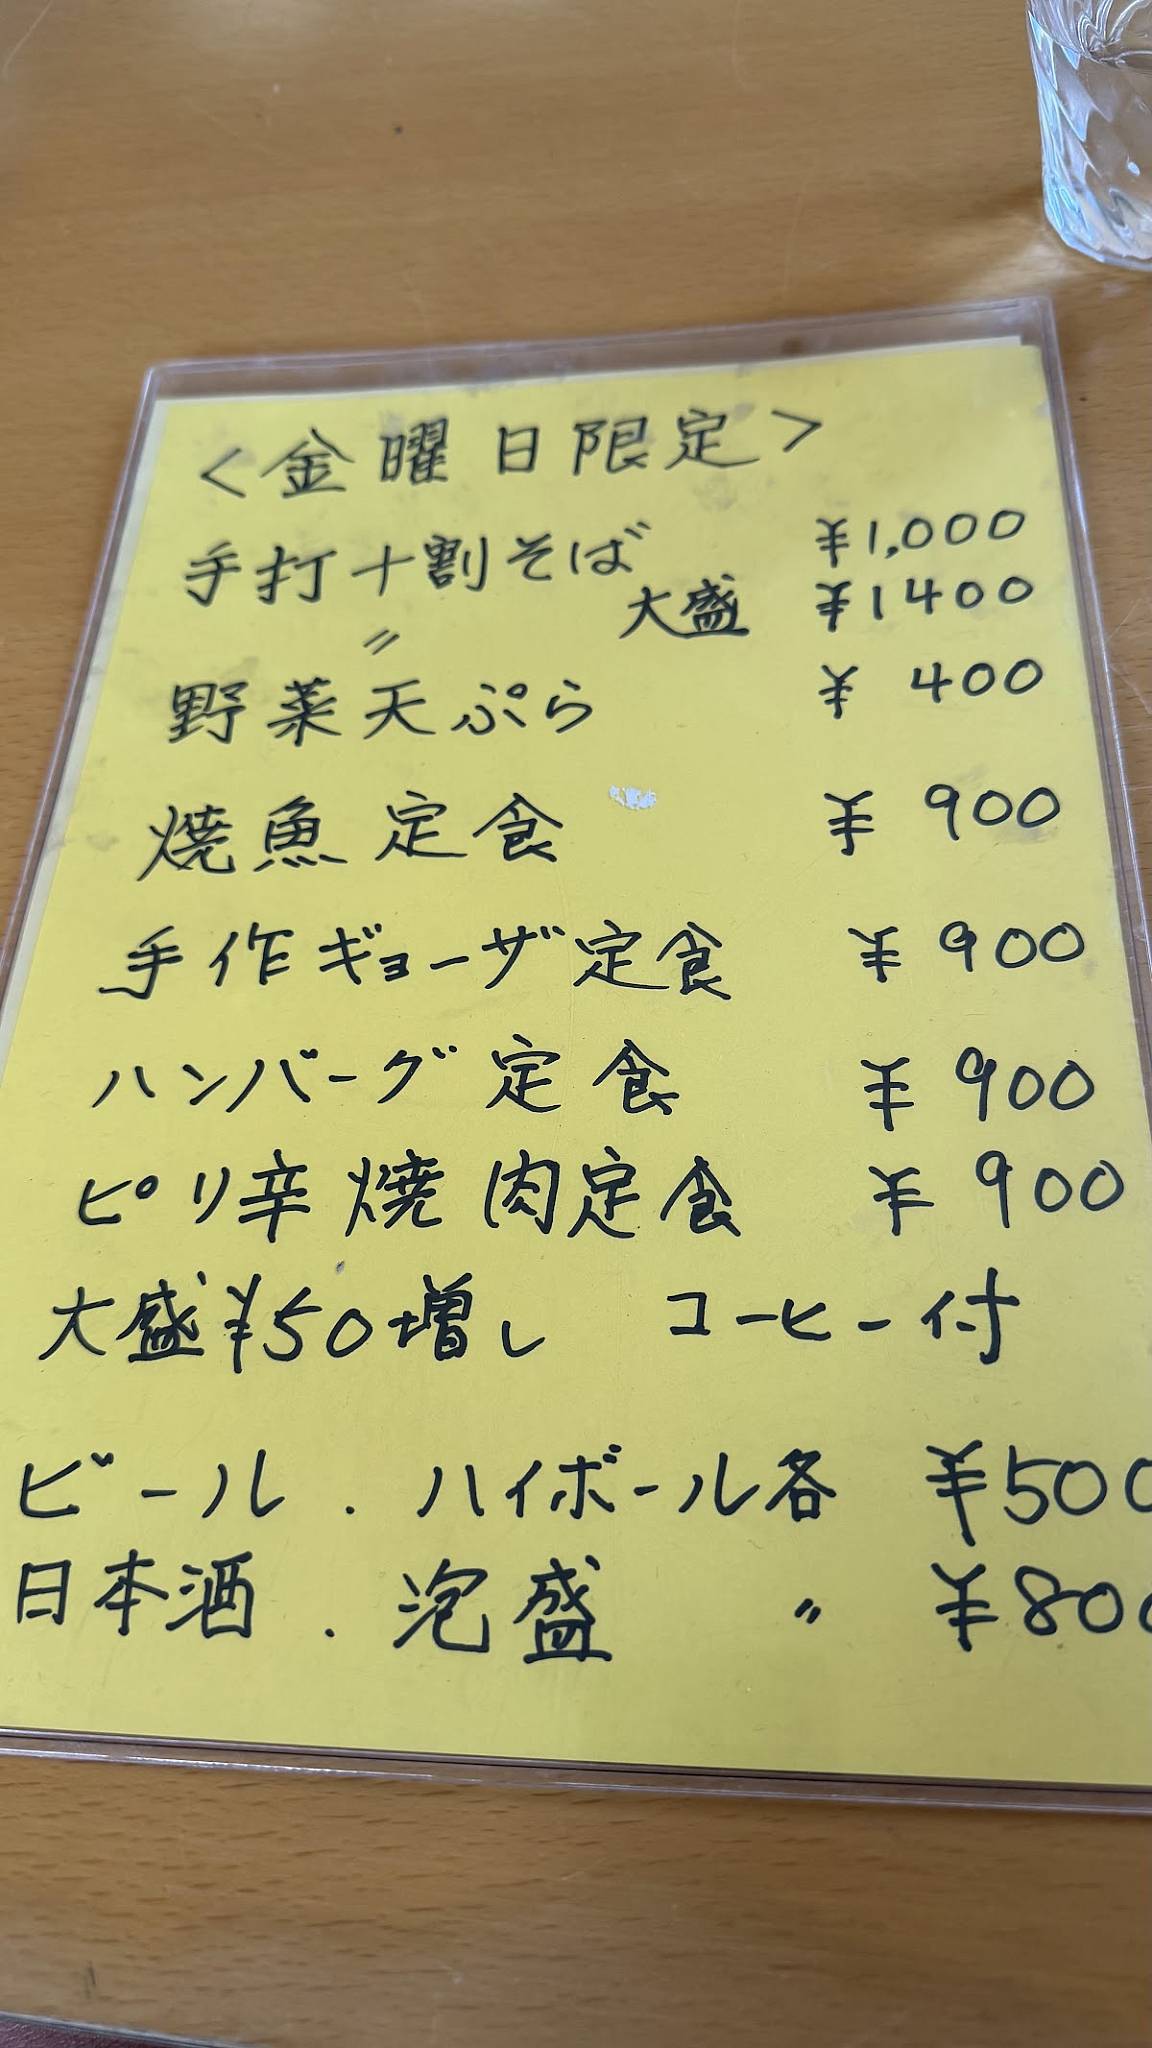 <金曜日限定>
手打十割そば ¥1,000
〃 大盛 ¥1400
野菜天ぷら ¥400
焼魚定食 ¥900
手作ギョーザ定食 ¥900
ハンバーグ定食 ¥900
ピリ辛焼肉定食 ¥900
大盛¥50増し コーヒー付
ビール.ハイボール各 ¥500
日本酒.泡盛 〃 ¥800